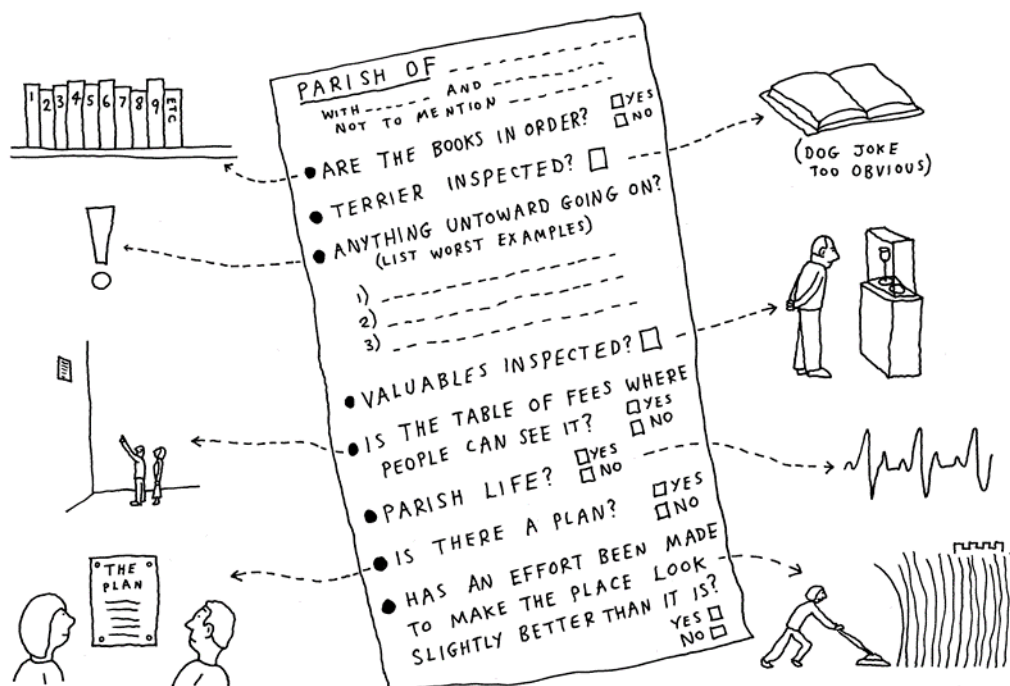 PARISH OF
WITH AND
NOT TO MENTION
ARE THE BOOKS IN ORDER? YES
NO
TERRIER INSPECTED?
ANYTHING UNTOWARD GOING ON?
(LIST WORST EXAMPLES)
1)
2)
3)
VALUABLES INSPECTED?
IS THE TABLE OF FEES WHERE
PEOPLE CAN SEE IT? YES
NO
PARISH LIFE? YES
NO
IS THERE A PLAN? YES
NO
HAS AN EFFORT BEEN MADE
TO MAKE THE PLACE LOOK
SLIGHTLY BETTER THAN IT IS?
YES
NO
1 2 3 4 5 6 7 8 9 ETC
THE
PLAN
(DOG JOKE
TOO OBVIOUS)